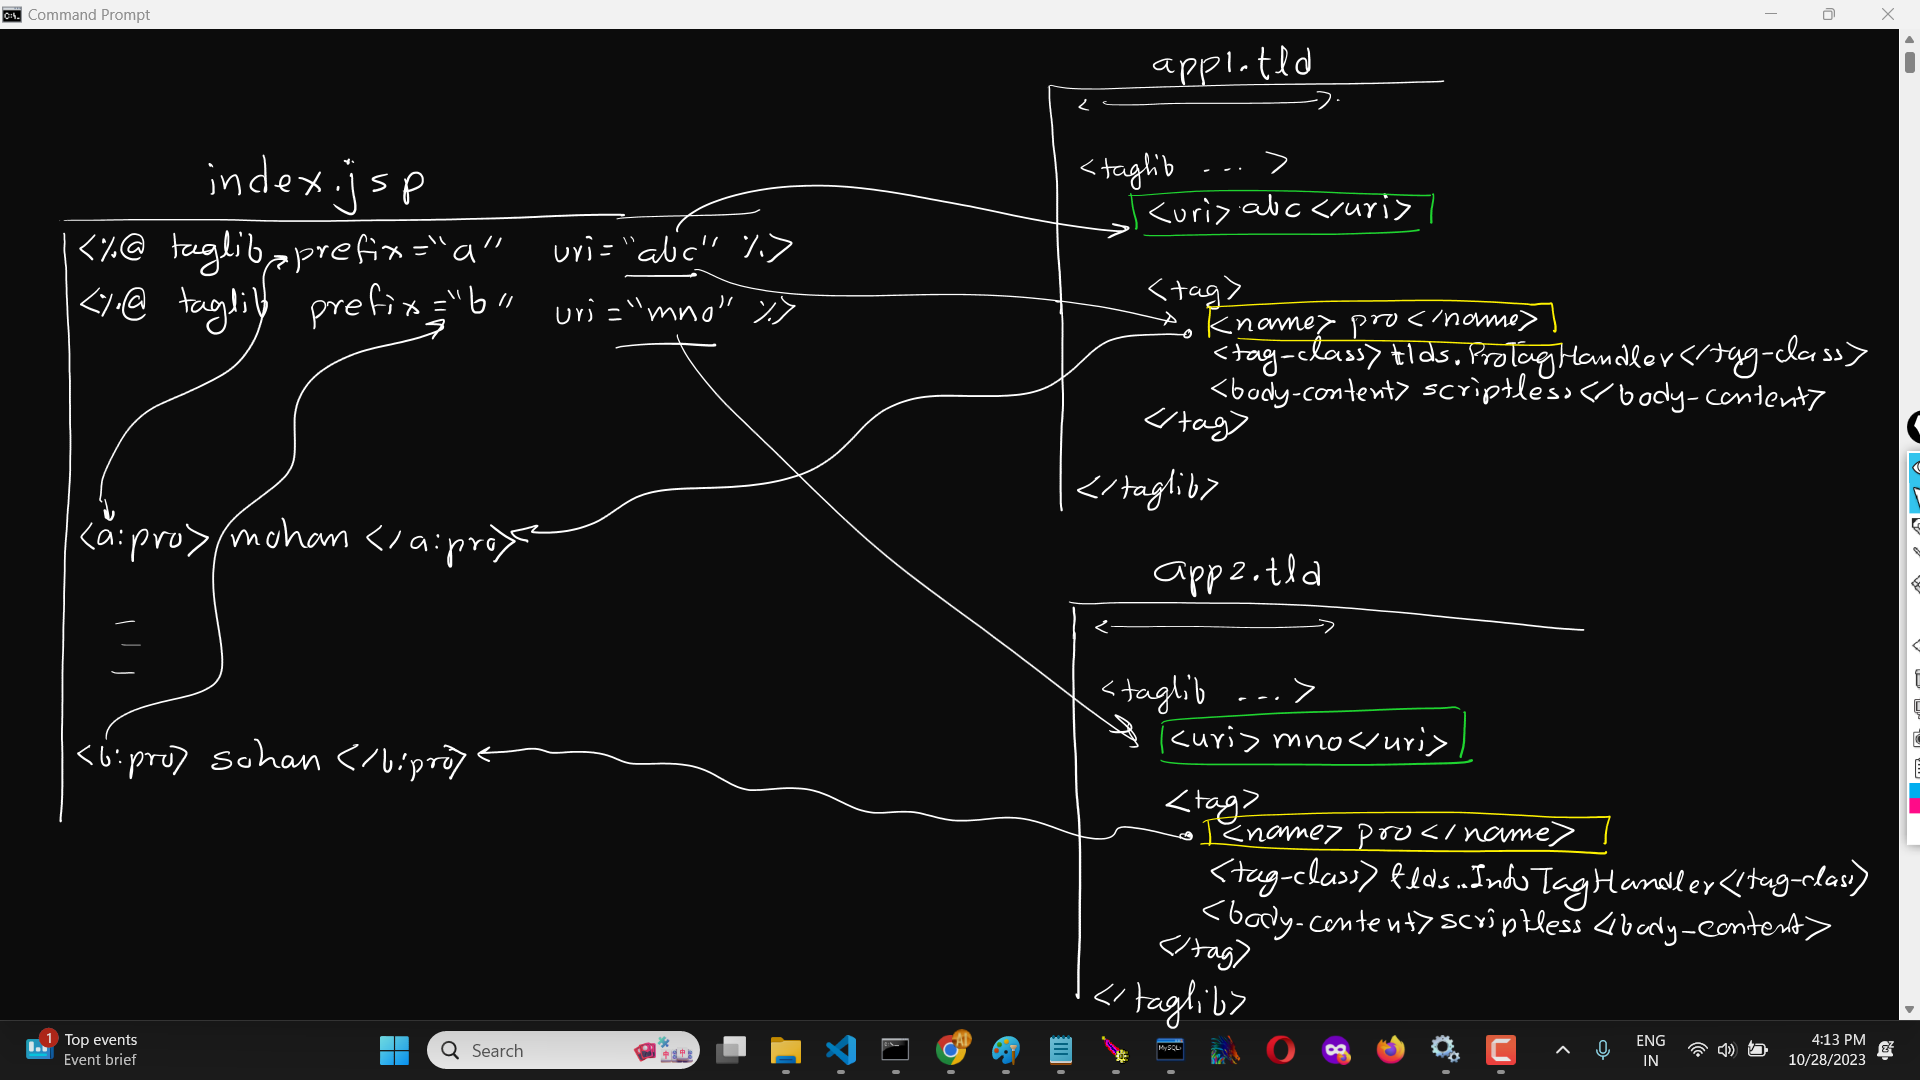 Command Prompt
index.jsp
<%@ taglib prefix="a" uri="abc" %>
<%@ taglib prefix="b" uri="mno" %>
<a:pro> mohan </a:pro>
<b:pro> sohan </b:pro>
app1.tld
<taglib ... >
<uri> abc </uri>
<tag>
<name> pro </name>
<tag-class> tlds.ProTagHandler </tag-class>
<body-content> scriptless </body-content>
</tag>
</taglib>
app2.tld
<taglib ... >
<uri> mno </uri>
<tag>
<name> pro </name>
<tag-class> tlds..InfoTagHandler </tag-class>
<body-content> scriptless </body-content>
</tag>
</taglib>
1
Top events
Event brief
Search
AI
MySQL
ENG
IN
4:13 PM
10/28/2023